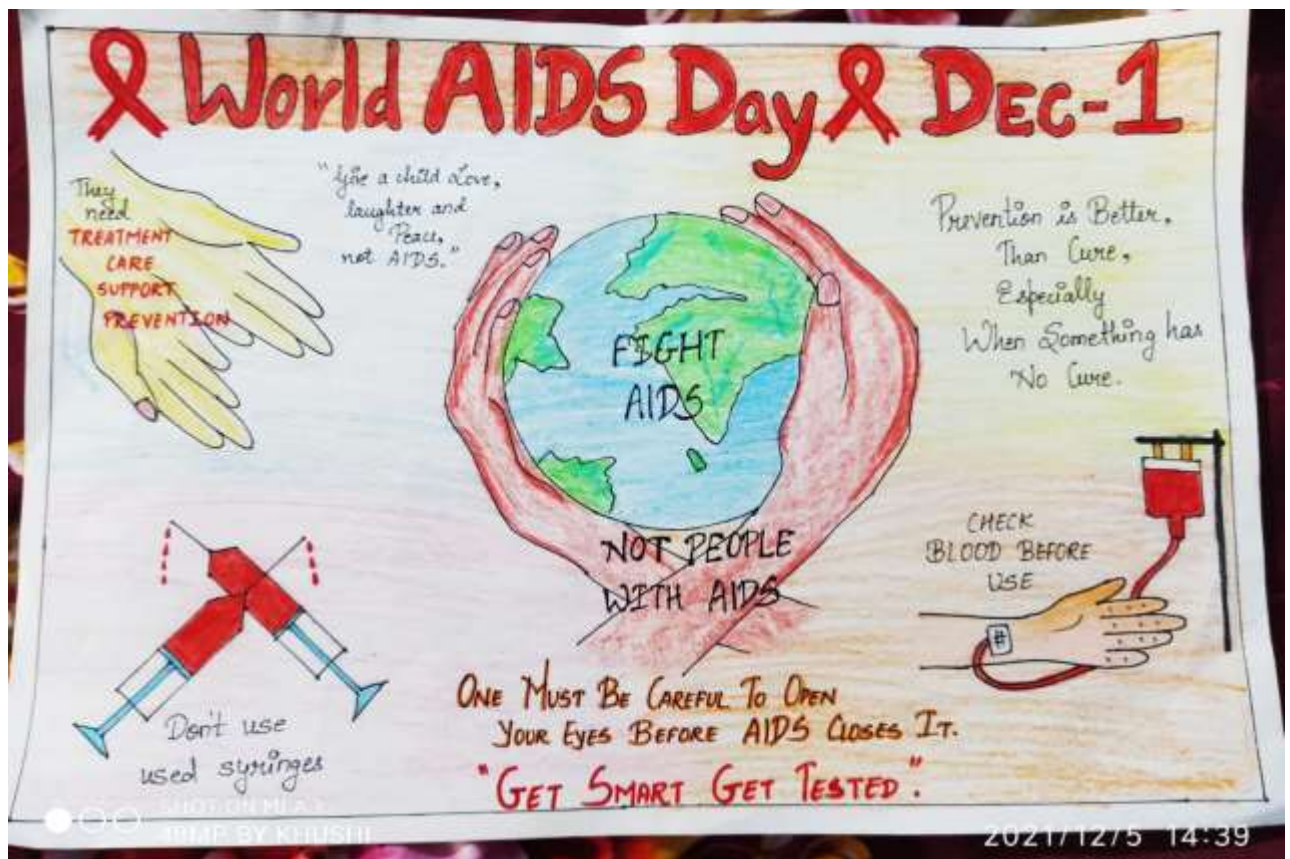 World AIDS Day DEC-1
They
need
TREATMENT
CARE
SUPPORT
PREVENTION
"Give a child Love,
laughter and
Peace,
not AIDS."
Prevention is Better,
Than Cure,
Especially
When Something has
No Cure.
FIGHT
AIDS
NOT PEOPLE
WITH AIDS
CHECK
BLOOD BEFORE
USE
Don't use
used syringes
ONE MUST BE CAREFUL TO OPEN
YOUR EYES BEFORE AIDS CLOSES IT.
"GET SMART GET TESTED".
SHOT ON MI A3
48MP BY KHUSHI
2021/12/5 14:39